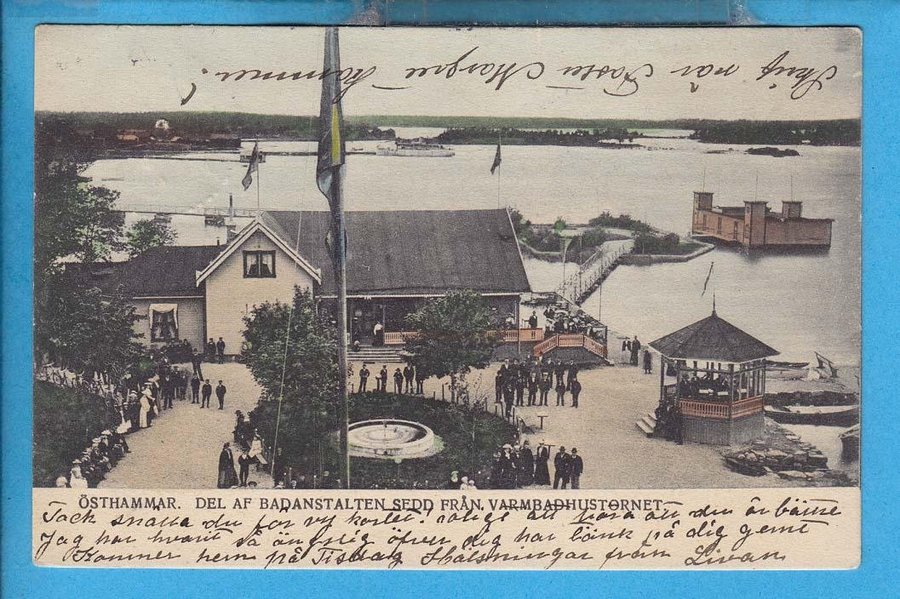 Skrif när Faster Margret kommer!
ÖSTHAMMAR. DEL AF BADANSTALTEN SEDD FRÅN VARMBADHUSTORNET
Tack snälla du för vy kortet! roligt att höra att du är bättre
Jag har varit så ängslig öfver dig har tänk på dig gemt
Kommer hem på Tisdag Hälsningar from Livan